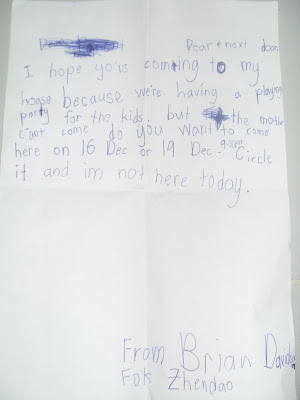 Dear next door
I hope yo're coming to my
house because we're having a playing
party for the kids. but the mother
c'ant come do you want to come
here on 16 Dec or 19 Dec. Circle
it and im not here today.
From Brian
Fok Zhendao